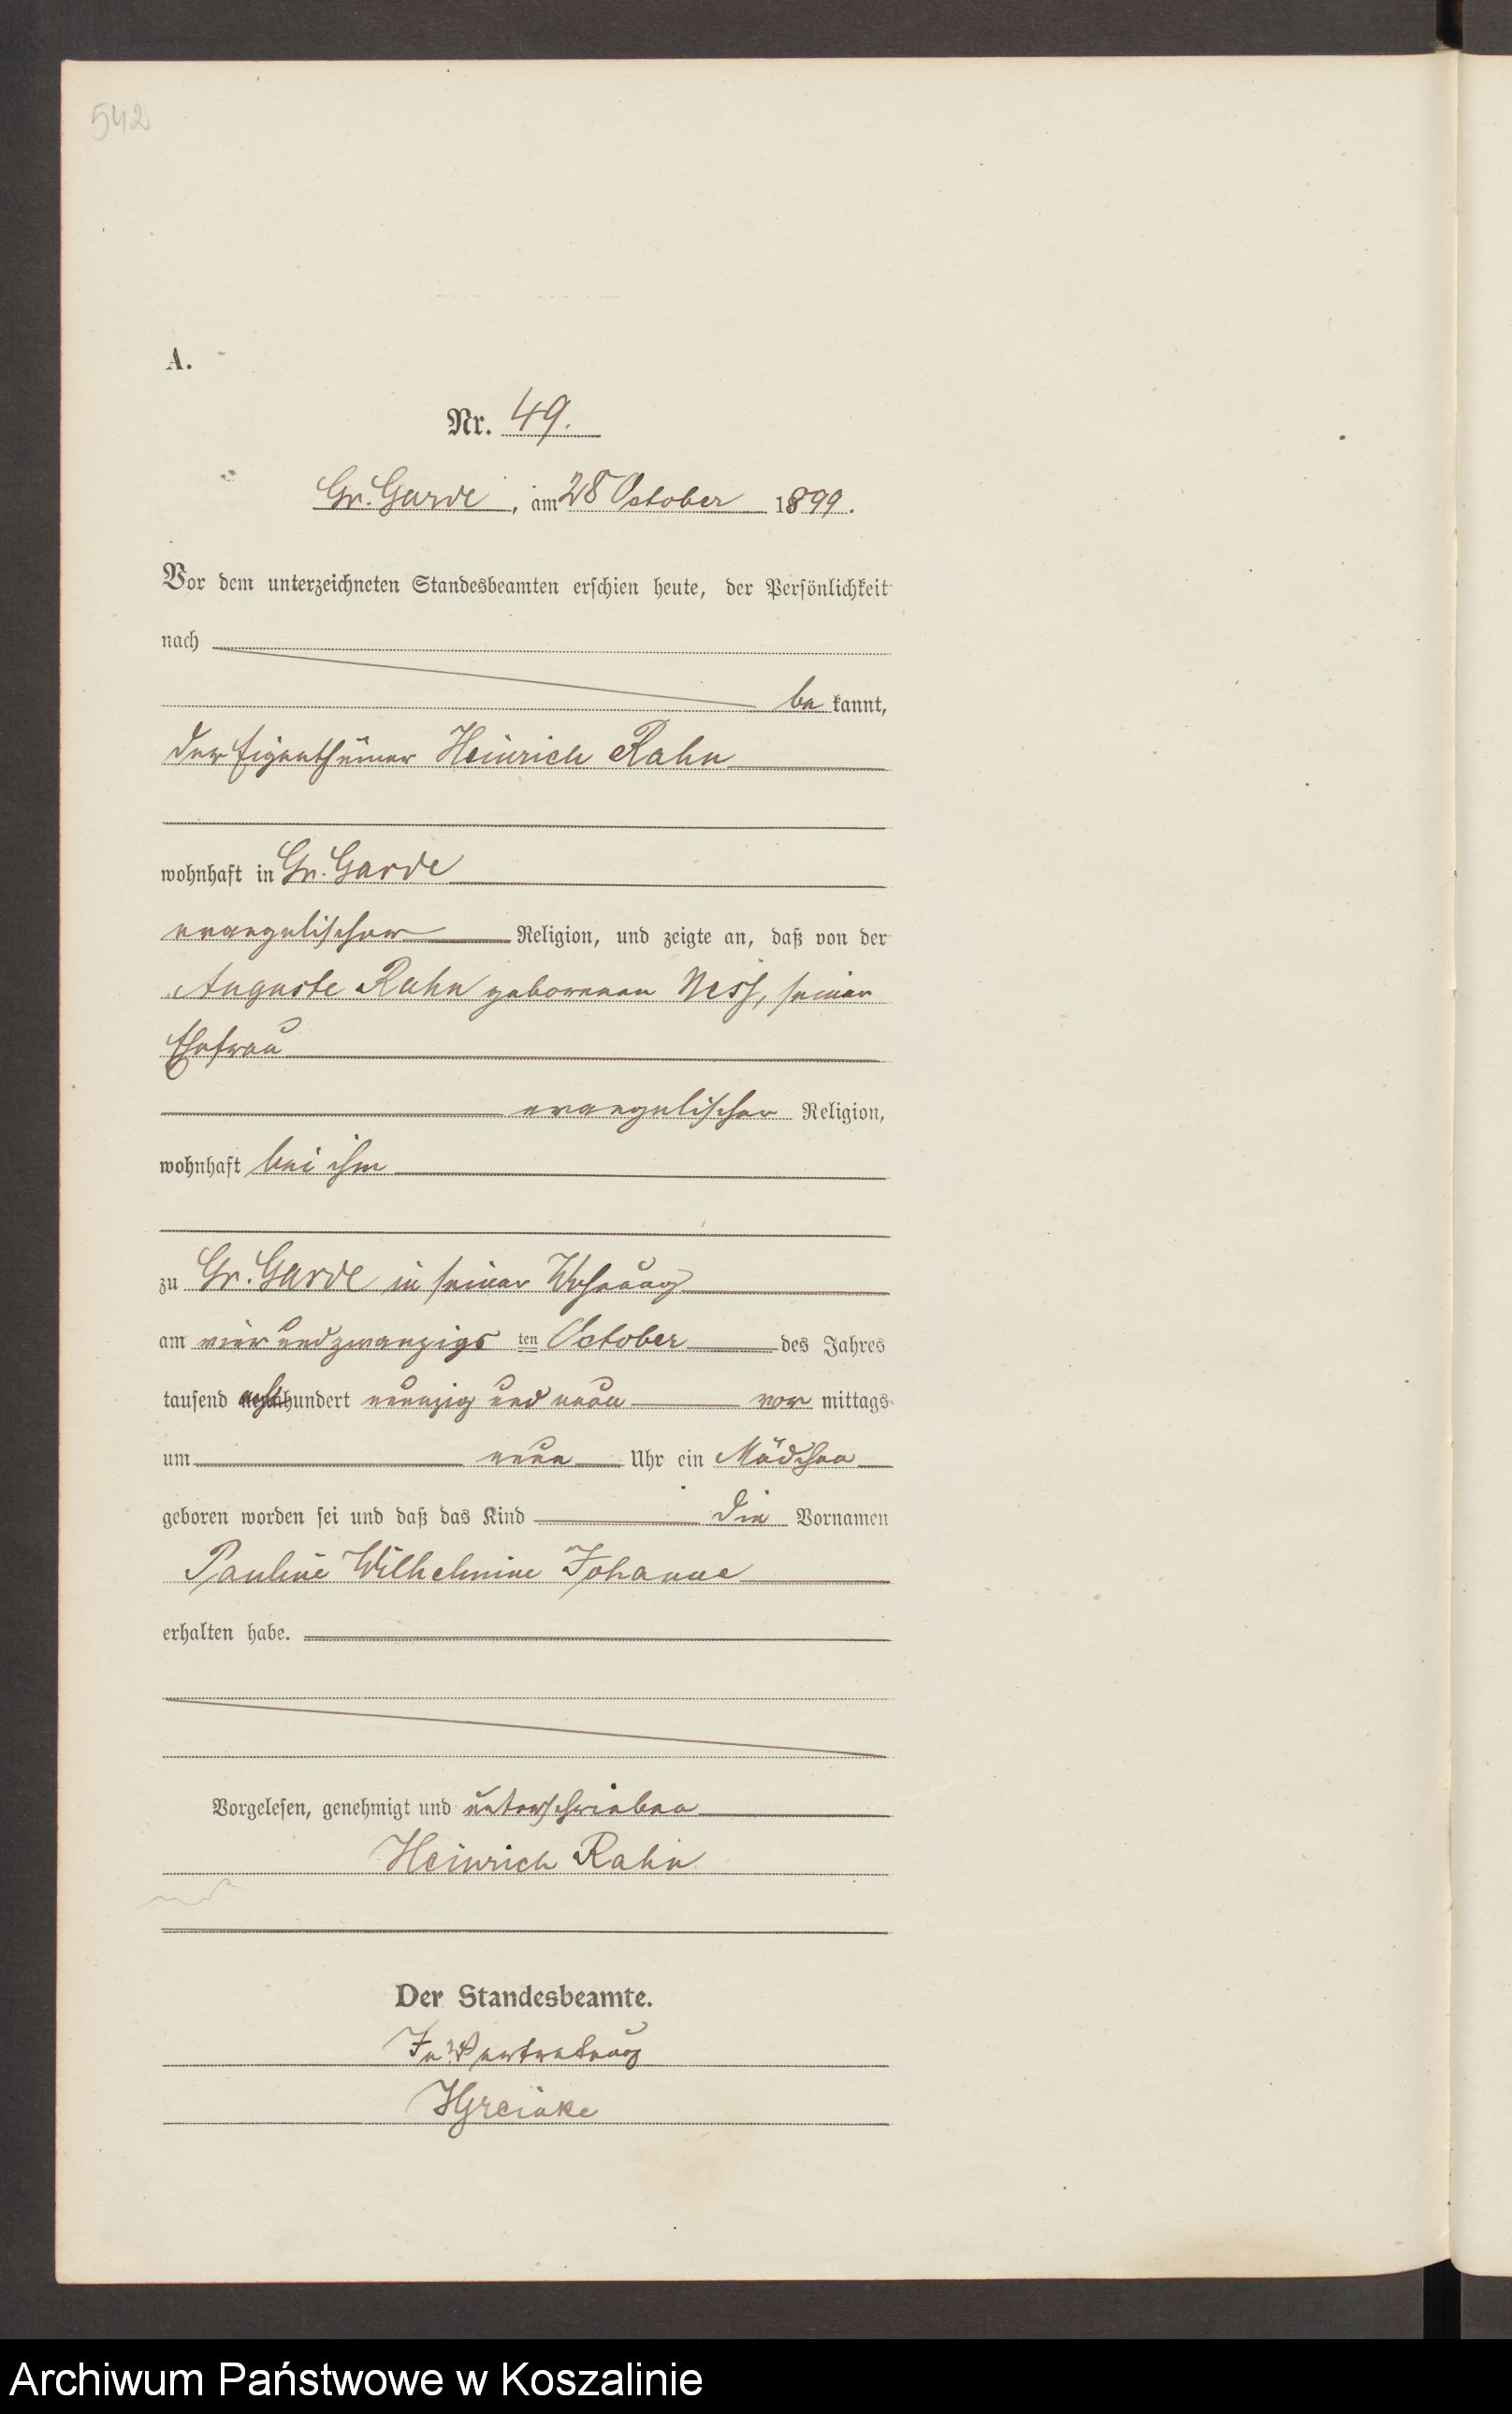 542
A.
Nr. 49.
Gr. Garde, am 28 October 1899.
Vor dem unterzeichneten Standesbeamten erschien heute, der Persönlichkeit
nach
be kannt,
der Eigenthümer Heinrich Rahn
wohnhaft in Gr. Garde
evangelischer Religion, und zeigte an, daß von der
Auguste Rahn geborenen Ness, seiner
Ehefrau
evangelischer Religion,
wohnhaft bei ihm
zu Gr. Garde in seiner Wohnung
am vier und zwanzigs ten October des Jahres
tausend achthundert neunzig und neun vor mittags
um neun Uhr ein Mädchen
geboren worden sei und daß das Kind die Vornamen
Pauline Wilhelmine Johanne
erhalten habe.
Vorgelesen, genehmigt und unterschrieben
Heinrich Rahn
Der Standesbeamte.
In Vertretung
Archiwum Państwowe w Koszalinie